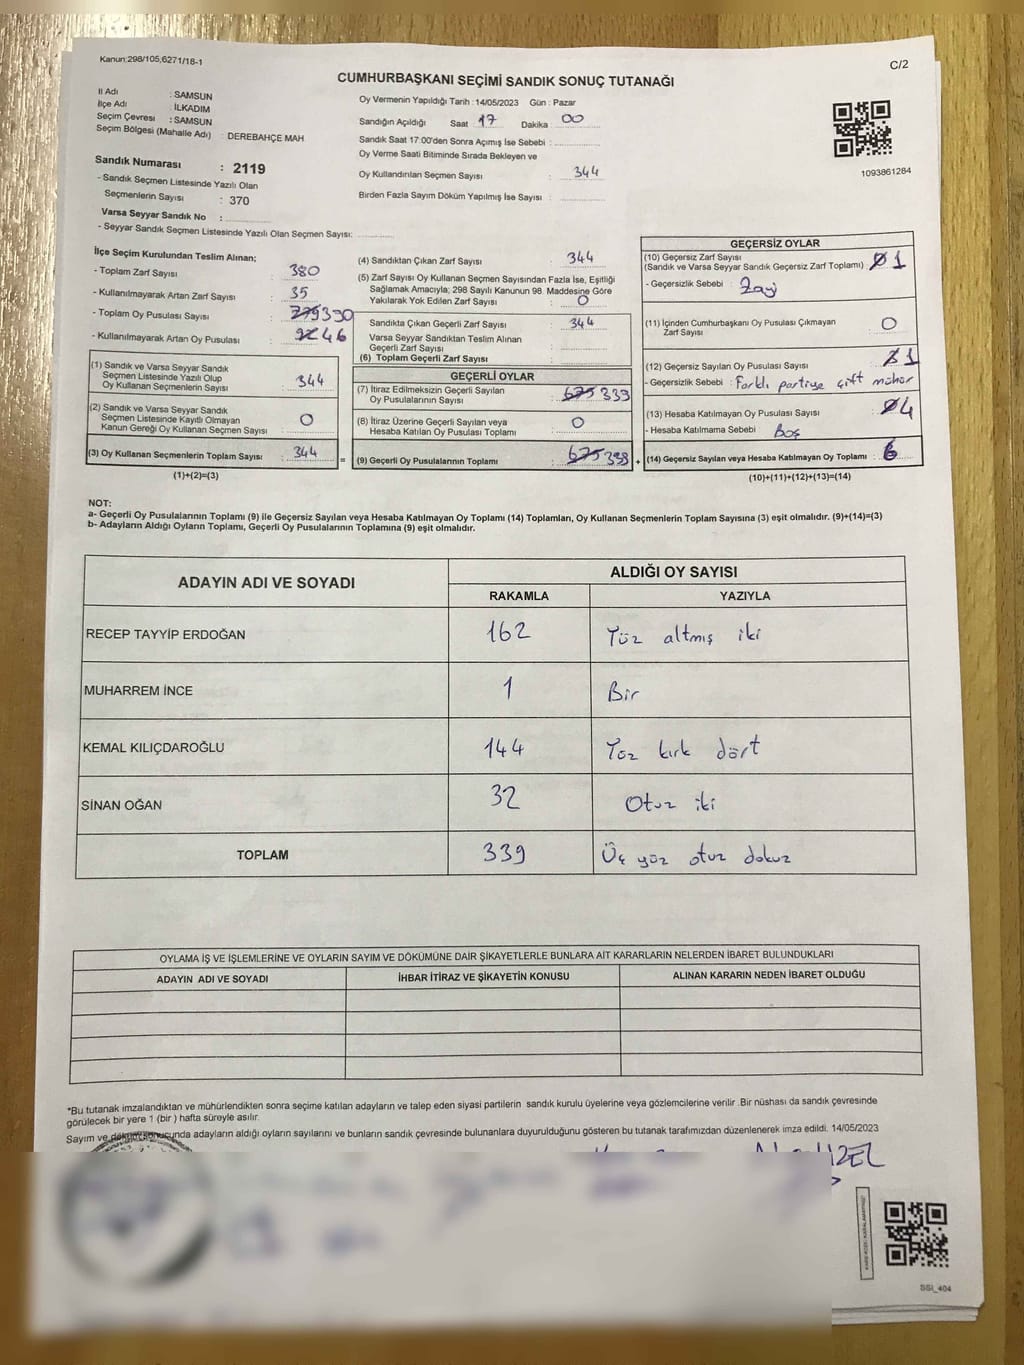 Kanun:298/105,6271/18-1
C/2
CUMHURBAŞKANI SEÇİMİ SANDIK SONUÇ TUTANAĞI
İl Adı : SAMSUN
İlçe Adı : İLKADIM
Seçim Çevresi : SAMSUN
Seçim Bölgesi (Mahalle Adı) : DEREBAHÇE MAH
Sandık Numarası : 2119
- Sandık Seçmen Listesinde Yazılı Olan
Seçmenlerin Sayısı : 370
Varsa Seyyar Sandık No :
- Seyyar Sandık Seçmen Listesinde Yazılı Olan Seçmen Sayısı:
Oy Vermenin Yapıldığı Tarih : 14/05/2023 Gün : Pazar
Sandığın Açıldığı Saat 17 Dakika 00
Sandık Saat 17:00'den Sonra Açımış İse Sebebi :
Oy Verme Saati Bitiminde Sırada Bekleyen ve
Oy Kullandırılan Seçmen Sayısı : 344
Birden Fazla Sayım Döküm Yapılmış İse Sayısı :
1093861284
İlçe Seçim Kurulundan Teslim Alınan;
- Toplam Zarf Sayısı : 380
- Kullanılmayarak Artan Zarf Sayısı : 35
- Toplam Oy Pusulası Sayısı : 390
- Kullanılmayarak Artan Oy Pusulası : 46
(1) Sandık ve Varsa Seyyar Sandık
Seçmen Listesinde Yazılı Olup
Oy Kullanan Seçmenlerin Sayısı : 344
(2) Sandık ve Varsa Seyyar Sandık
Seçmen Listesinde Kayıtlı Olmayan
Kanun Gereği Oy Kullanan Seçmen Sayısı : 0
(3) Oy Kullanan Seçmenlerin Toplam Sayısı : 344
(1)+(2)=(3)
(4) Sandıktan Çıkan Zarf Sayısı : 344
(5) Zarf Sayısı Oy Kullanan Seçmen Sayısından Fazla İse, Eşitliği
Sağlamak Amacıyla; 298 Sayılı Kanunun 98. Maddesine Göre
Yakılarak Yok Edilen Zarf Sayısı : 0
Sandıkta Çıkan Geçerli Zarf Sayısı : 344
Varsa Seyyar Sandıktan Teslim Alınan
Geçerli Zarf Sayısı :
(6) Toplam Geçerli Zarf Sayısı :
GEÇERLİ OYLAR
(7) İtiraz Edilmeksizin Geçerli Sayılan
Oy Pusulalarının Sayısı : 675 339
(8) İtiraz Üzerine Geçerli Sayılan veya
Hesaba Katılan Oy Pusulası Toplamı : 0
= (9) Geçerli Oy Pusulalarının Toplamı : 675 339 +
GEÇERSİZ OYLAR
(10) Geçersiz Zarf Sayısı
(Sandık ve Varsa Seyyar Sandık Geçersiz Zarf Toplamı) : 0 1
- Geçersizlik Sebebi : Zayi
(11) İçinden Cumhurbaşkanı Oy Pusulası Çıkmayan
Zarf Sayısı : 0
(12) Geçersiz Sayılan Oy Pusulası Sayısı : 1
- Geçersizlik Sebebi : Farklı partiye çift mühür
(13) Hesaba Katılmayan Oy Pusulası Sayısı : 0 4
- Hesaba Katılmama Sebebi : Boş
(14) Geçersiz Sayılan veya Hesaba Katılmayan Oy Toplamı : 6
(10)+(11)+(12)+(13)=(14)
NOT:
a- Geçerli Oy Pusulalarının Toplamı (9) ile Geçersiz Sayılan veya Hesaba Katılmayan Oy Toplamı (14) Toplamları, Oy Kullanan Seçmenlerin Toplam Sayısına (3) eşit olmalıdır. (9)+(14)=(3)
b- Adayların Aldığı Oyların Toplamı, Geçerli Oy Pusulalarının Toplamına (9) eşit olmalıdır.
ADAYIN ADI VE SOYADI
ALDIĞI OY SAYISI
RAKAMLA YAZIYLA
RECEP TAYYİP ERDOĞAN 162 Yüz altmış iki
MUHARREM İNCE 1 Bir
KEMAL KILIÇDAROĞLU 144 Yüz kırk dört
SİNAN OĞAN 32 Otuz iki
TOPLAM 339 Üç yüz otuz dokuz
OYLAMA İŞ VE İŞLEMLERİNE VE OYLARIN SAYIM VE DÖKÜMÜNE DAİR ŞİKAYETLERLE BUNLARA AİT KARARLARIN NELERDEN İBARET BULUNDUKLARI
ADAYIN ADI VE SOYADI İHBAR İTİRAZ VE ŞİKAYETİN KONUSU ALINAN KARARIN NEDEN İBARET OLDUĞU
*Bu tutanak imzalandıktan ve mühürlendikten sonra seçime katılan adayların ve talep eden siyasi partilerin sandık kurulu üyelerine veya gözlemcilerine verilir .Bir nüshası da sandık çevresinde
görülecek bir yere 1 (bir ) hafta süreyle asılır.
Sayım ve döküm sonucunda adayların aldığı oyların sayılarını ve bunların sandık çevresinde bulunanlara duyurulduğunu gösteren bu tutanak tarafımızdan düzenlenerek imza edildi. 14/05/2023
SSI_404